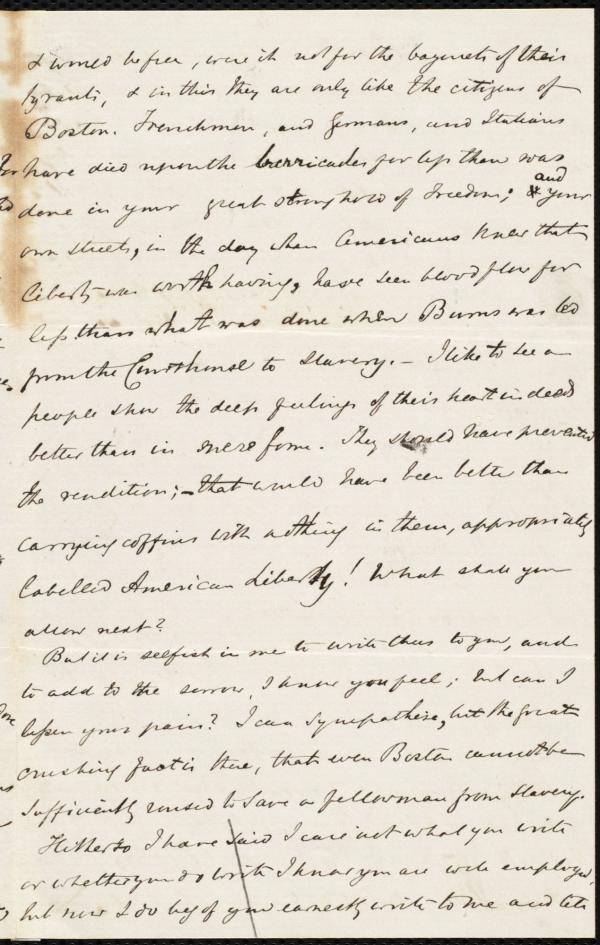 & would be free, were it not for the bayonets of their
tyrants, & in this they are only like the citizens of
Boston. Frenchmen, and Germans, and Italians
have died upon the barricades for less than was
done in your great stronghold of Freedom; and your
own streets, in the day when Americans knew that
Liberty was worth having, have seen blood flow for
less than what was done when Burns was led
from the Courthouse to slavery. – I like to see a
people show the deep feelings of their heart in deeds
better than in mere form. They should have prevented
the rendition; – that would have been better than
carrying coffins with nothing in them, appropriately
labelled American Liberty! What shall you
allow next?
But it is selfish in me to write thus to you, and
to add to the sorrow, I know you feel; but can I
lessen your pain? I can sympathise, but the great
crushing fact is there, that even Boston cannot be
sufficiently roused to save a fellowman from slavery.
Hitherto I have said I care not what you write
or whether you do write I know you are well employed,
but now I do beg of you earnestly write to me and let